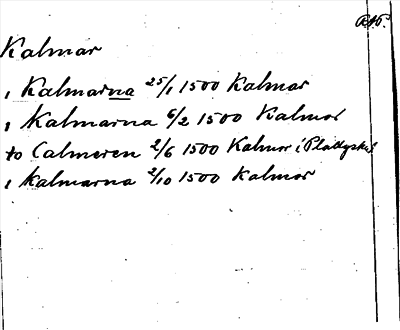 RAP.
Kalmar
i Kalmarna 25/1 1500 Kalmar
i Kalmarna 6/2 1500 Kalmar
to Calmeren 2/6 1500 Kalmar i Plattyska
i Kalmarna 2/10 1500 Kalmar